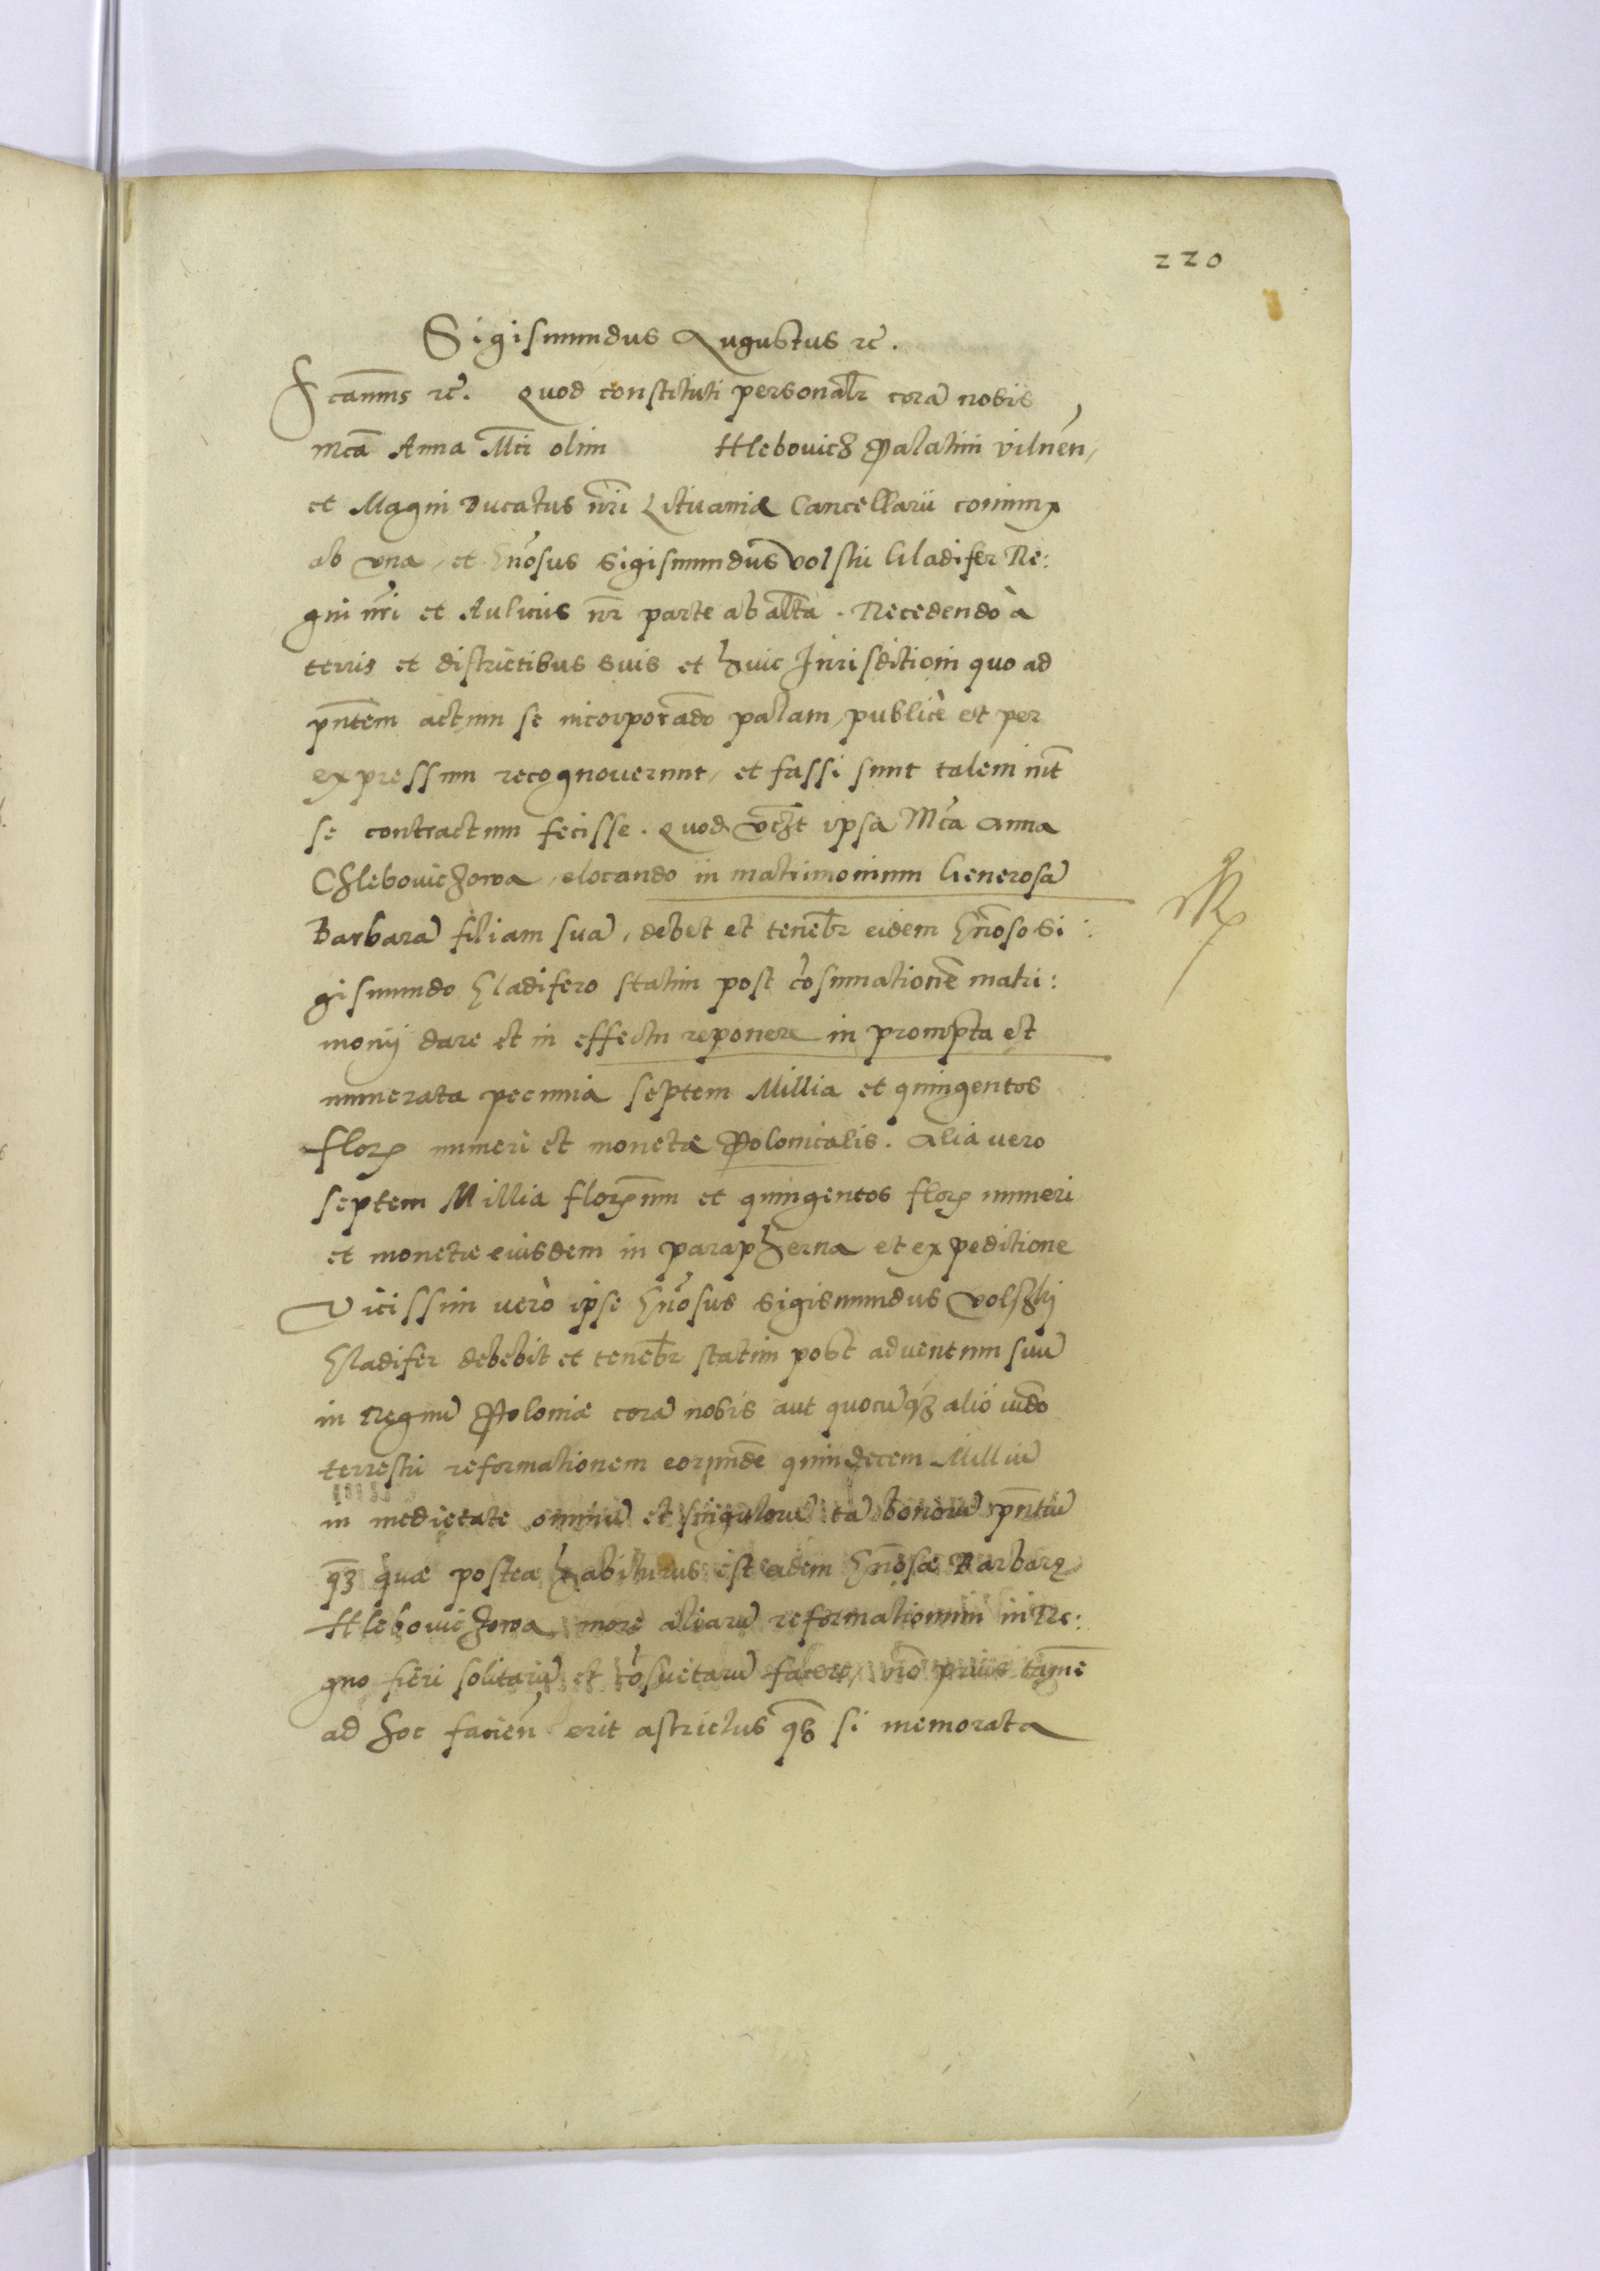 220
Sigismundus Augustus rc̃.
Scam̃ns rc̃. Quod constituti personalr̃ corã nobis
Mcã Anna Mc̃i olim Hlebovicz Palatini vilnen̄,
et Magni Ducatus nr̃i Lituaniæ Cancellarii coniunx
ab vna, et Gñosus Sigismundus Volski Gladifer Re:
gni nr̃i et Aulicus nr̃ parte ab altã. Recedendo à
terris et districtibus suis et huic Jurisditioni quo ad
pñtem actum se incorporãdo palam, publicè et per
expressum recognoverunt, et fassi sunt talem int̃
se contractum fecisse. Quod vc̃zt ipsa Mcã Anna
Chleboviczowa, elocando in matrimonium Generosã
Barbarã filiam suã, debet et tenebr̃ eidem Gñoso Si:
gismundo Gladifero statim post cõsumationẽ matri:
monij dare et in effectu reponere in prompta et
numerata pecunia septem Millia et quingentos
flor. numeri et monetæ Polonicalis. Alia vero
septem Millia flor̃num et quingentos flor. numeri
et monetæ eiusdem in parapherna et expeditione
Vicissim verò ipse Gñosus Sigismundus Volszkij
Gladifer debebit et tenebr̃ statim post adventum suũ
in Regnũ Poloniæ corã nobis aut quocũqz alio iudõ
terrestri reformationem eorundẽ quindecem Milliũ
in medietate omniũ et singulorũ tã bonorũ pñtiũ
qz̃ quæ postea habiturus est eidem Gñosæ Barbaræ
Hlebovicżowa more aliarũ reformationum in Re:
gno fieri solitarũ et cõsuetarũ facere, nõ prius tamẽ
ad hoc facien̄ erit astrictus qz̃ si memorata